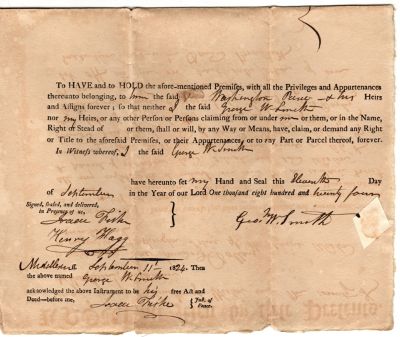 To HAVE and to HOLD the afore-mentioned Premises, with all the Privileges and Appurtenances
thereunto belonging, to him the said Washington & his Heirs
and Assigns forever; so that neither I the said George W. Smith
nor my Heirs, or any other Person or Persons claiming from or under me or them, or in the Name,
Right or Stead of or them, shall or will, by any Way or Means, have, claim, or demand any Right
or Title to the aforesaid Premises, or their Appurtenances, or to any Part or Parcel thereof, forever.
In Witness whereof, I the said George W. Smith
have hereunto set my Hand and Seal this Eleventh Day
of September in the Year of our Lord One thousand eight hundred and twenty four
Signed, sealed, and delivered,
in Presence of us,
Isaac Fiske
Henry
Geo. W. Smith
Middlesex September 11th 1824. Then
the above named George W. Smith
acknowledged the above Instrument to be his free Act and
Deed—before me, Isaac Fiske Just. of
Peace.